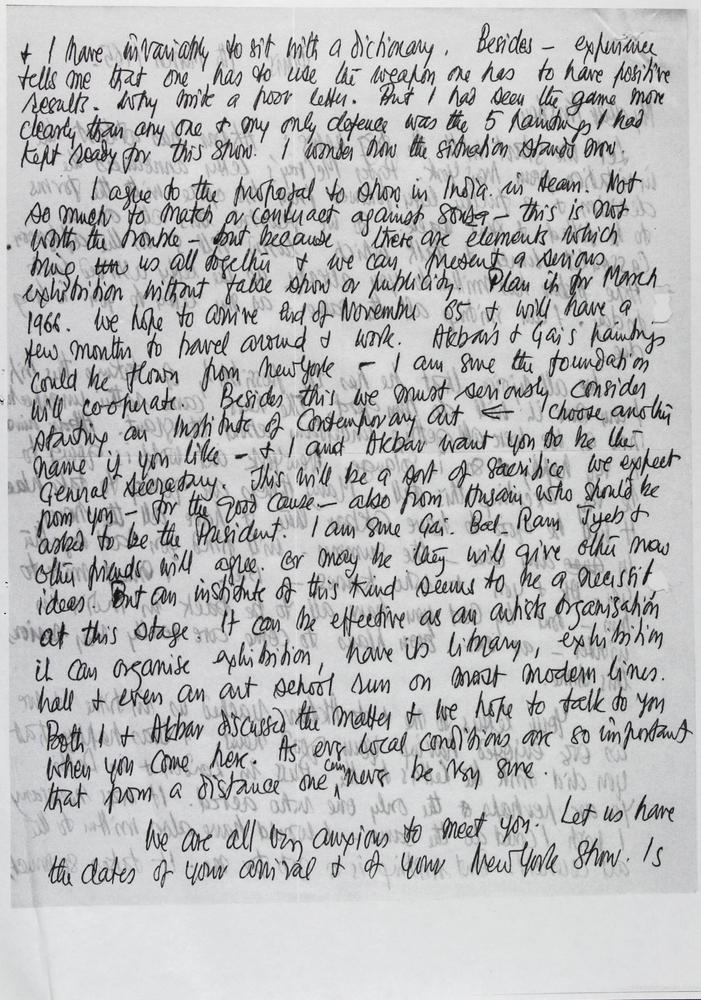 & I have invariably to sit with a dictionary. Besides – experience
tells me that one has to use the weapon one has to have positive
results. Why write a poor letter. But I had seen the game more
clearly than any one & my only defence was the 5 paintings I had
kept ready for this show. I wonder how the situation stands now.
I agree to the proposal to show in India in team. Not
so much to match or contract against Souza – this is not
worth the trouble – but because there are elements which
bring us all together & we can present a serious
exhibition without false show or publicity. Plan it for March
1966. We hope to arrive end of November 65 & will have a
few months to travel around & work. Akbar's & Gai's paintings
could be flown from New York – I am sure the foundation
will co-operate. Besides this we must seriously consider
starting an Institute of Contemporary Art ← choose another
name if you like – & I and Akbar want you to be the
General Secretary. This will be a sort of sacrifice we expect
from you – for the good cause – also from Husain who should be
asked to be the President. I am sure Gai. Bal. Ram Tyeb &
other friends will agree. Or may be they will give other new
ideas. But an institute of this kind seems to be a necessit
at this stage. It can be effective as an artists organisation
it can organise exhibition, have its library, exhibition
hall & even an art school run on most modern lines.
Both I & Akbar discussed the matter & we hope to talk to you
when you come here. As ever local conditions are so important
that from a distance one can never be very sure.
We are all very anxious to meet you. Let us have
the dates of your arrival & of your New York show. Is